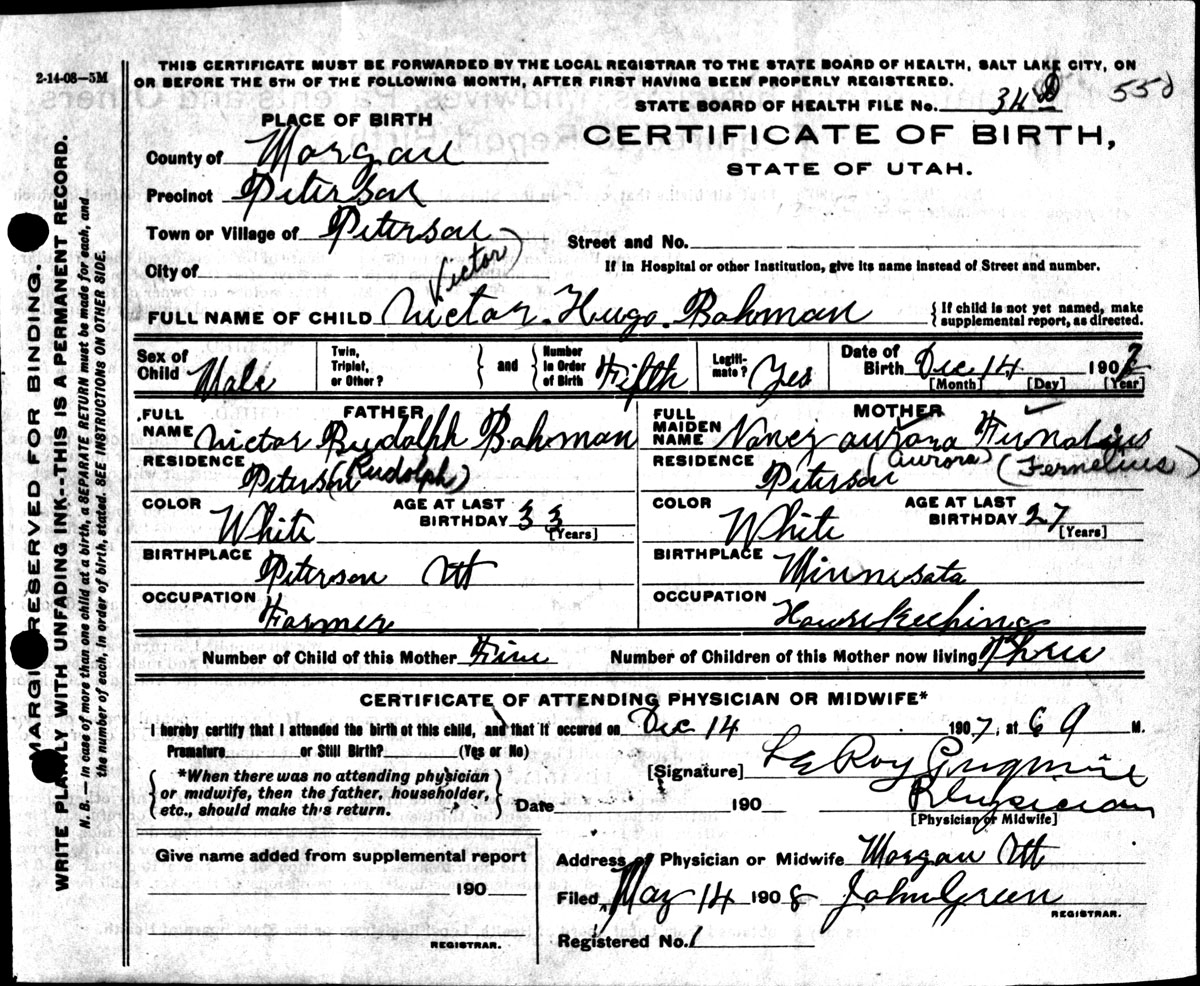 2-14-08—5M
THIS CERTIFICATE MUST BE FORWARDED BY THE LOCAL REGISTRAR TO THE STATE BOARD OF HEALTH, SALT LAKE CITY, ON
OR BEFORE THE 5TH OF THE FOLLOWING MONTH, AFTER FIRST HAVING BEEN PROPERLY REGISTERED.
STATE BOARD OF HEALTH FILE No. 34 550
PLACE OF BIRTH
CERTIFICATE OF BIRTH,
STATE OF UTAH.
County of Morgan
Precinct Peterson
Town or Village of Peterson
Street and No.
City of
If in Hospital or other Institution, give its name instead of Street and number.
Victor)
FULL NAME OF CHILD Victor. Hugo. Bohman { If child is not yet named, make
supplemental report, as directed.
Sex of Child Male Twin, Triplet, or Other? } and { Number in Order of Birth Fifth Legiti-mate? Yes Date of Birth Dec 14 1907
[Month] [Day] [Year]
FATHER
FULL NAME Victor Rudolph Bohman
RESIDENCE Peterson (Rudolph)
COLOR White AGE AT LAST BIRTHDAY 33 [Years]
BIRTHPLACE Peterson Ut
OCCUPATION Farmer
MOTHER
FULL MAIDEN NAME Nancy aurora Furnalius
RESIDENCE Peterson (Aurora) (Fernelius)
COLOR White AGE AT LAST BIRTHDAY 27 [Years]
BIRTHPLACE Minnesota
OCCUPATION Housekeeping
Number of Child of this Mother Five Number of Children of this Mother now living Three
CERTIFICATE OF ATTENDING PHYSICIAN OR MIDWIFE*
I hereby certify that I attended the birth of this child, and that it occured on Dec 14 1907, at 6 a M.
Premature or Still Birth? (Yes or No)
{ *When there was no attending physician
or midwife, then the father, householder,
etc., should make this return. }
[Signature] LeRoy
Date 190 Physician
[Physician or Midwife]
Give name added from supplemental report
190
REGISTRAR.
Address of Physician or Midwife Morgan Ut
Filed, May 14 1908 John Green
REGISTRAR.
Registered No. 1
MARGIN RESERVED FOR BINDING.
WRITE PLAINLY WITH UNFADING INK--THIS IS A PERMANENT RECORD.
N. B. — In case of more than one child at a birth, a SEPARATE RETURN must be made for each, and
the number of each, in order of birth, stated. SEE INSTRUCTIONS ON OTHER SIDE.